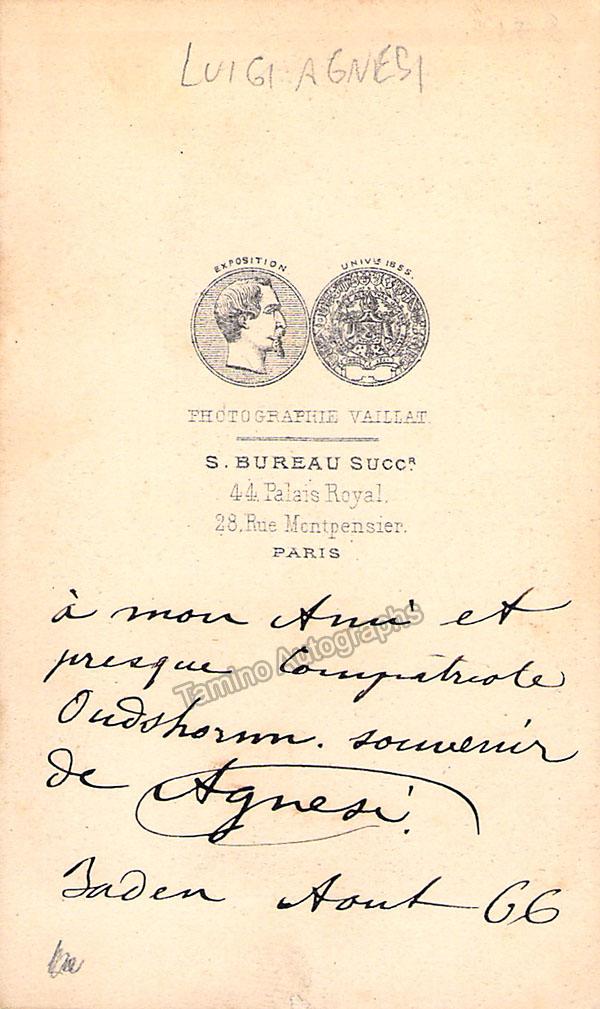 LUIGI AGNESI
EXPOSITION UNIVLE 1855.
PHOTOGRAPHIE VAILLAT.
S. BUREAU SUCCR
44, Palais Royal,
28, Rue Montpensier.
PARIS
à mon Ami et
presque Compatriote
Oudshoorn. souvenir
de Agnesi.
Baden Aout 66
Tamino Autographs